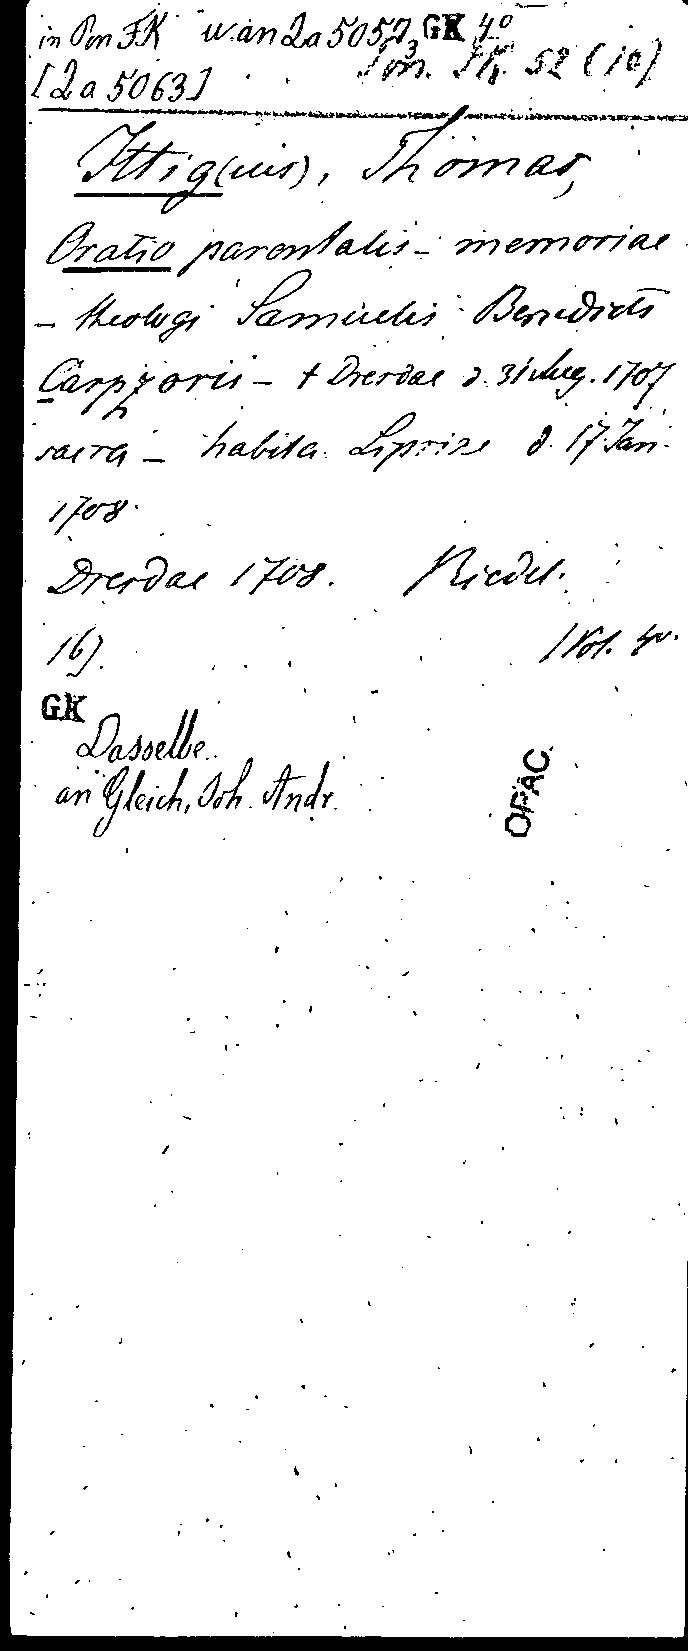 in Pon FK u. an 2a 5057, GK 4°
3
Pon. FK. 52 (10)
[2a 5063]
Ittig(ius), Thomas,
Oratio parentalis - memoriae
- theologi Samuelis Benedicti
Carpzovii - † Dresdae d. 31 Aug. 1707
sacra - habita Lipsiae d. 17 Jan.
1708.
Dresdae 1708. Riedel.
16). 1 Vol. 4o.
GK
Dasselbe
an Gleich, Joh. Andr.
OPAC